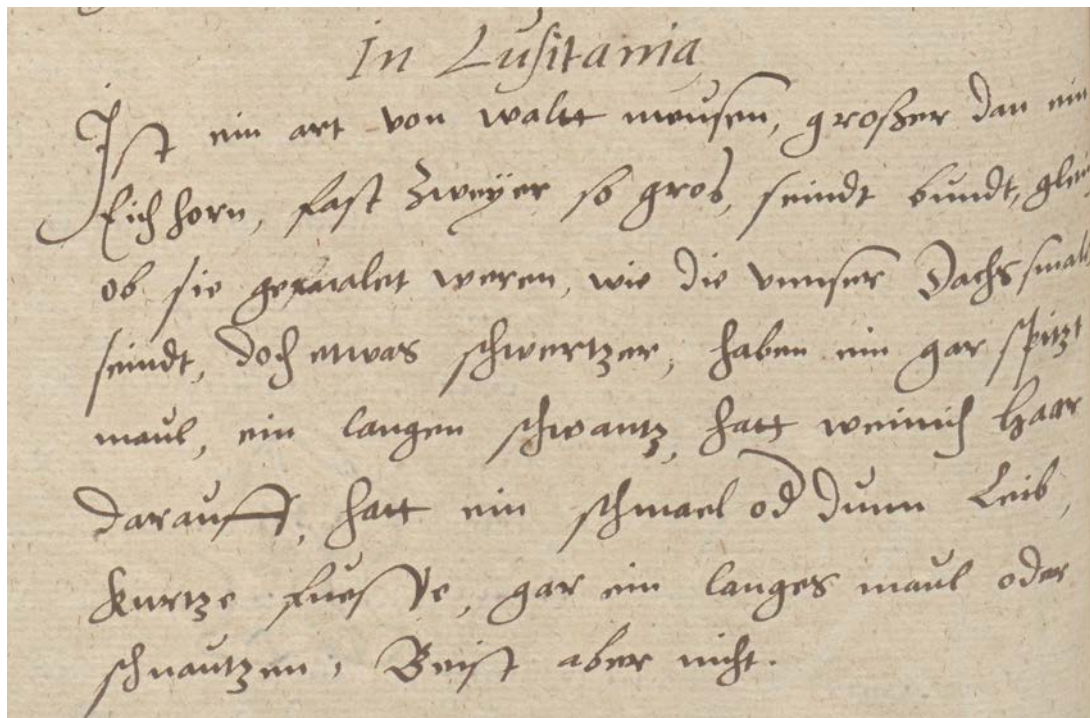 In Lusitania
Ist ein art von waltt meusen, großer dan ein
Eichhorn, fast zweyer so gros, seindt bundt, gleich
ob sie gemalet weren, wie die vnnser Dachs
seindt, doch etwas schwertzer, haben ein gar spitzt
maul, ein langen schwantz, hatt weinich Haar
darauff, hatt ein schmael od dunn Leib,
kurtze fuesse, gar ein langes maul oder
schnautzen, Beist aber nicht.